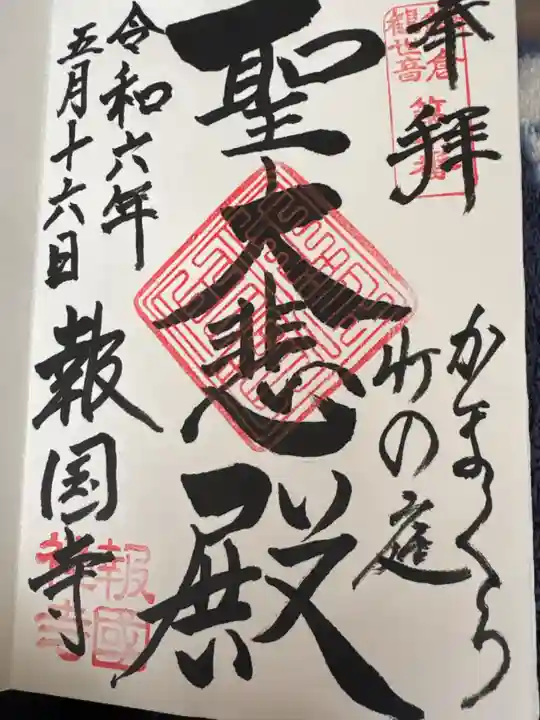 奉拝
かまくら
竹の庭
聖大悲殿
令和六年
五月十六日
報国寺
鎌倉
觀世音
報國
禅寺